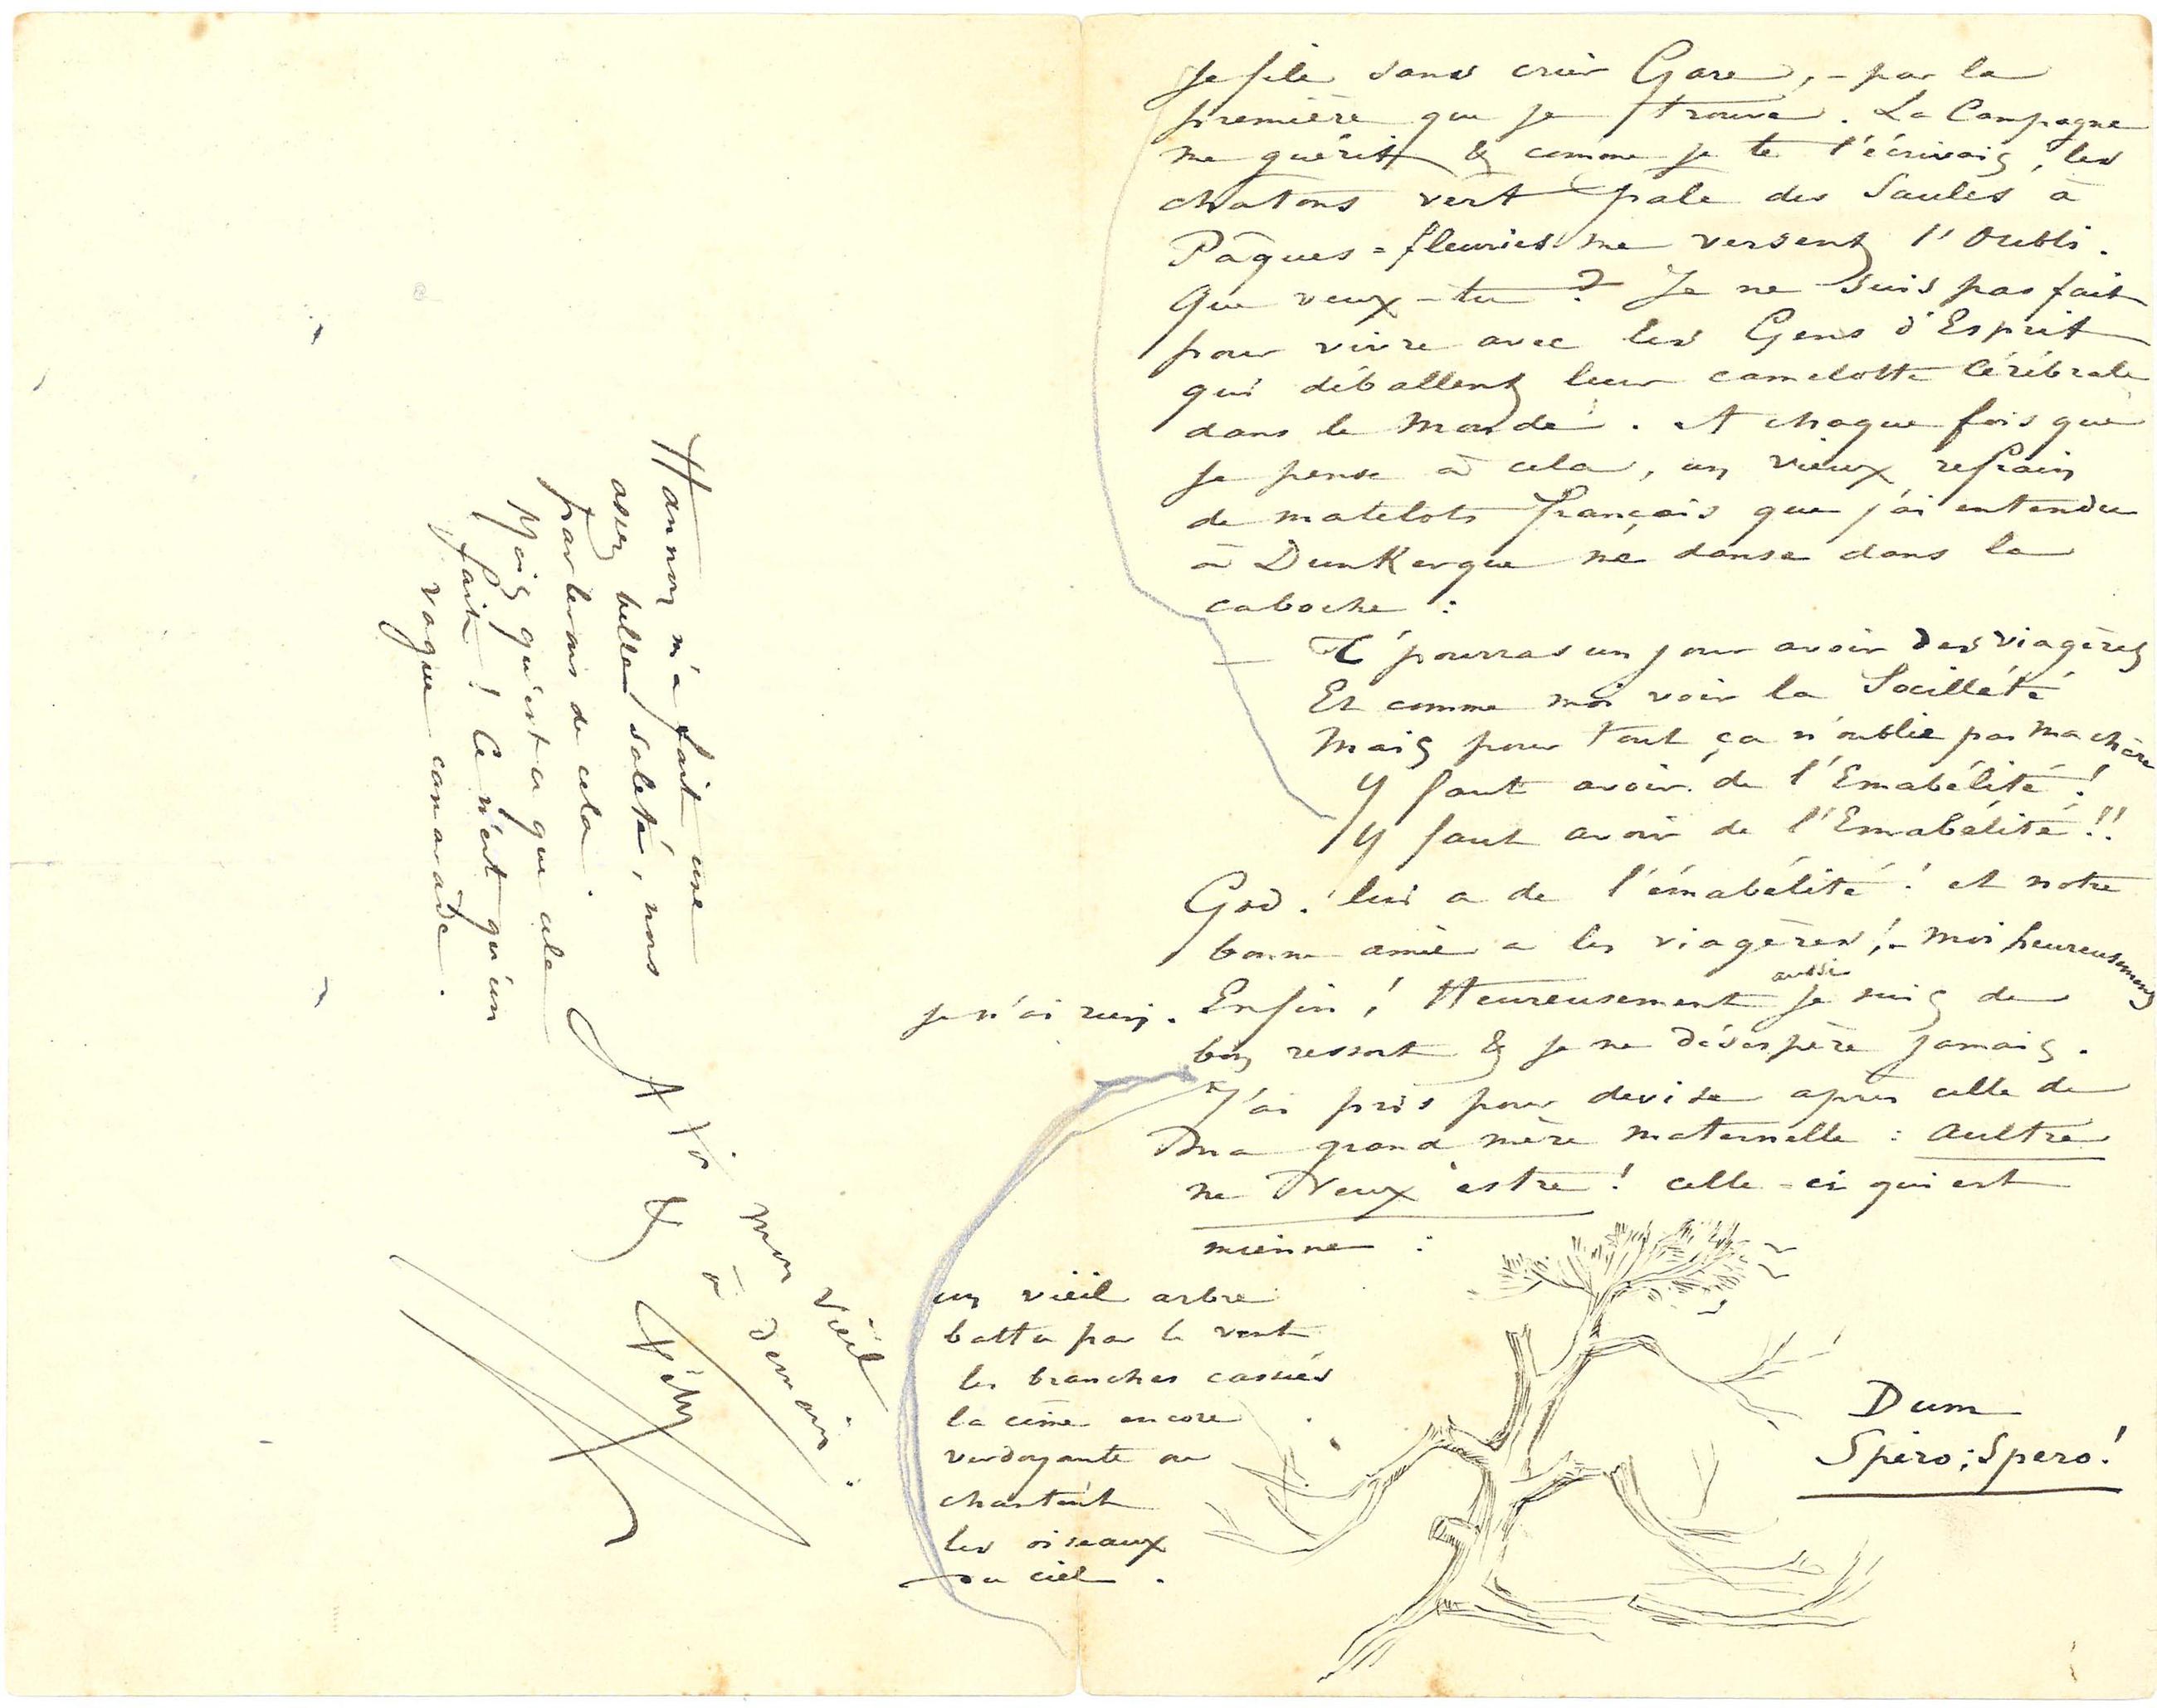 Je file sans crier Gare, - par la
première que je trouve. La Campagne
me guérit & comme je te l'écrivais, les
chatons vert pale des Saules à
Pâques=fleuries me versent l'Oubli.
Que veux-tu ? Je ne suis pas fait
pour vivre avec les Gens d'Esprit
qui déballent leur camelotte Cérébrale
dans le Monde. Et chaque fois que
je pense à cela, un vieux refrain
de matelots français que j'ai entendu
à Dunkerque me danse dans la
caboche :
T'pourras un jour avoir des viagères
Et comme moi voir la Socillété
Mais pour tout ça n'oublie pas ma chère
Y faut avoir de l'Emabélité !
Y faut avoir de l'Emabélité !!
God. lui a de l'émabélité ! et notre
bonne amie a les viagères ! - Moi heureusement
je n'ai rien. Enfin ! Heureusement aussi je suis de
bon ressort & je ne désespère jamais.
J'ai pris pour devise après celle de
Ma grand mère maternelle : Aultre
ne Veux estre ! celle-ci qui est
mienne :
un vieil arbre
battu par le vent
les branches cassées
la cime encore
verdoyante ou
chantent
les oiseaux
du ciel.
Dum
Spiro, Spero !
Hannon m'a fait une
assez belle saleté, nous
parlerons de cela.
Mais qu'est ce que cela
fait ! Ce n'est qu'un
vague camarade.
mon vieil
& à demain.
Fély